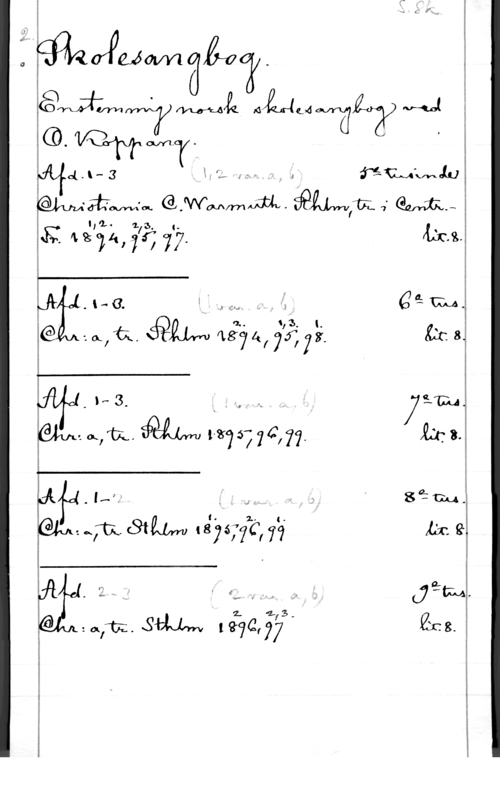 S. Sk.
2.
Skolesangbog.
Enstemmig norsk skolesangbog ved
O. Koppang.
Afd. 1-3 (1, 2 var. a, b) 5te tusinde
Christiania C. Warmuth. Sthlm, tr. i Centr.-
Tr. 1894, 95, 97. lit. 8.
Afd. 1-3. (1 var. a, b) 6e tus.
Chr:a, tr. Sthlm 1894, 95, 98. lit. 8.
Afd. 1-3. (1 var. a, b) 7e tus.
Chr:a, tr. Sthlm 1895, 96, 99. lit. 8.
Afd. 1-2. (1 var. a, b) 8e tus.
Chr:a, tr. Sthlm 1895, 96, 99 lit. 8.
Afd. 2-3 (2 var. a, b) 9e tus.
Chr:a, tr. Sthlm 1896, 97 lit. 8.